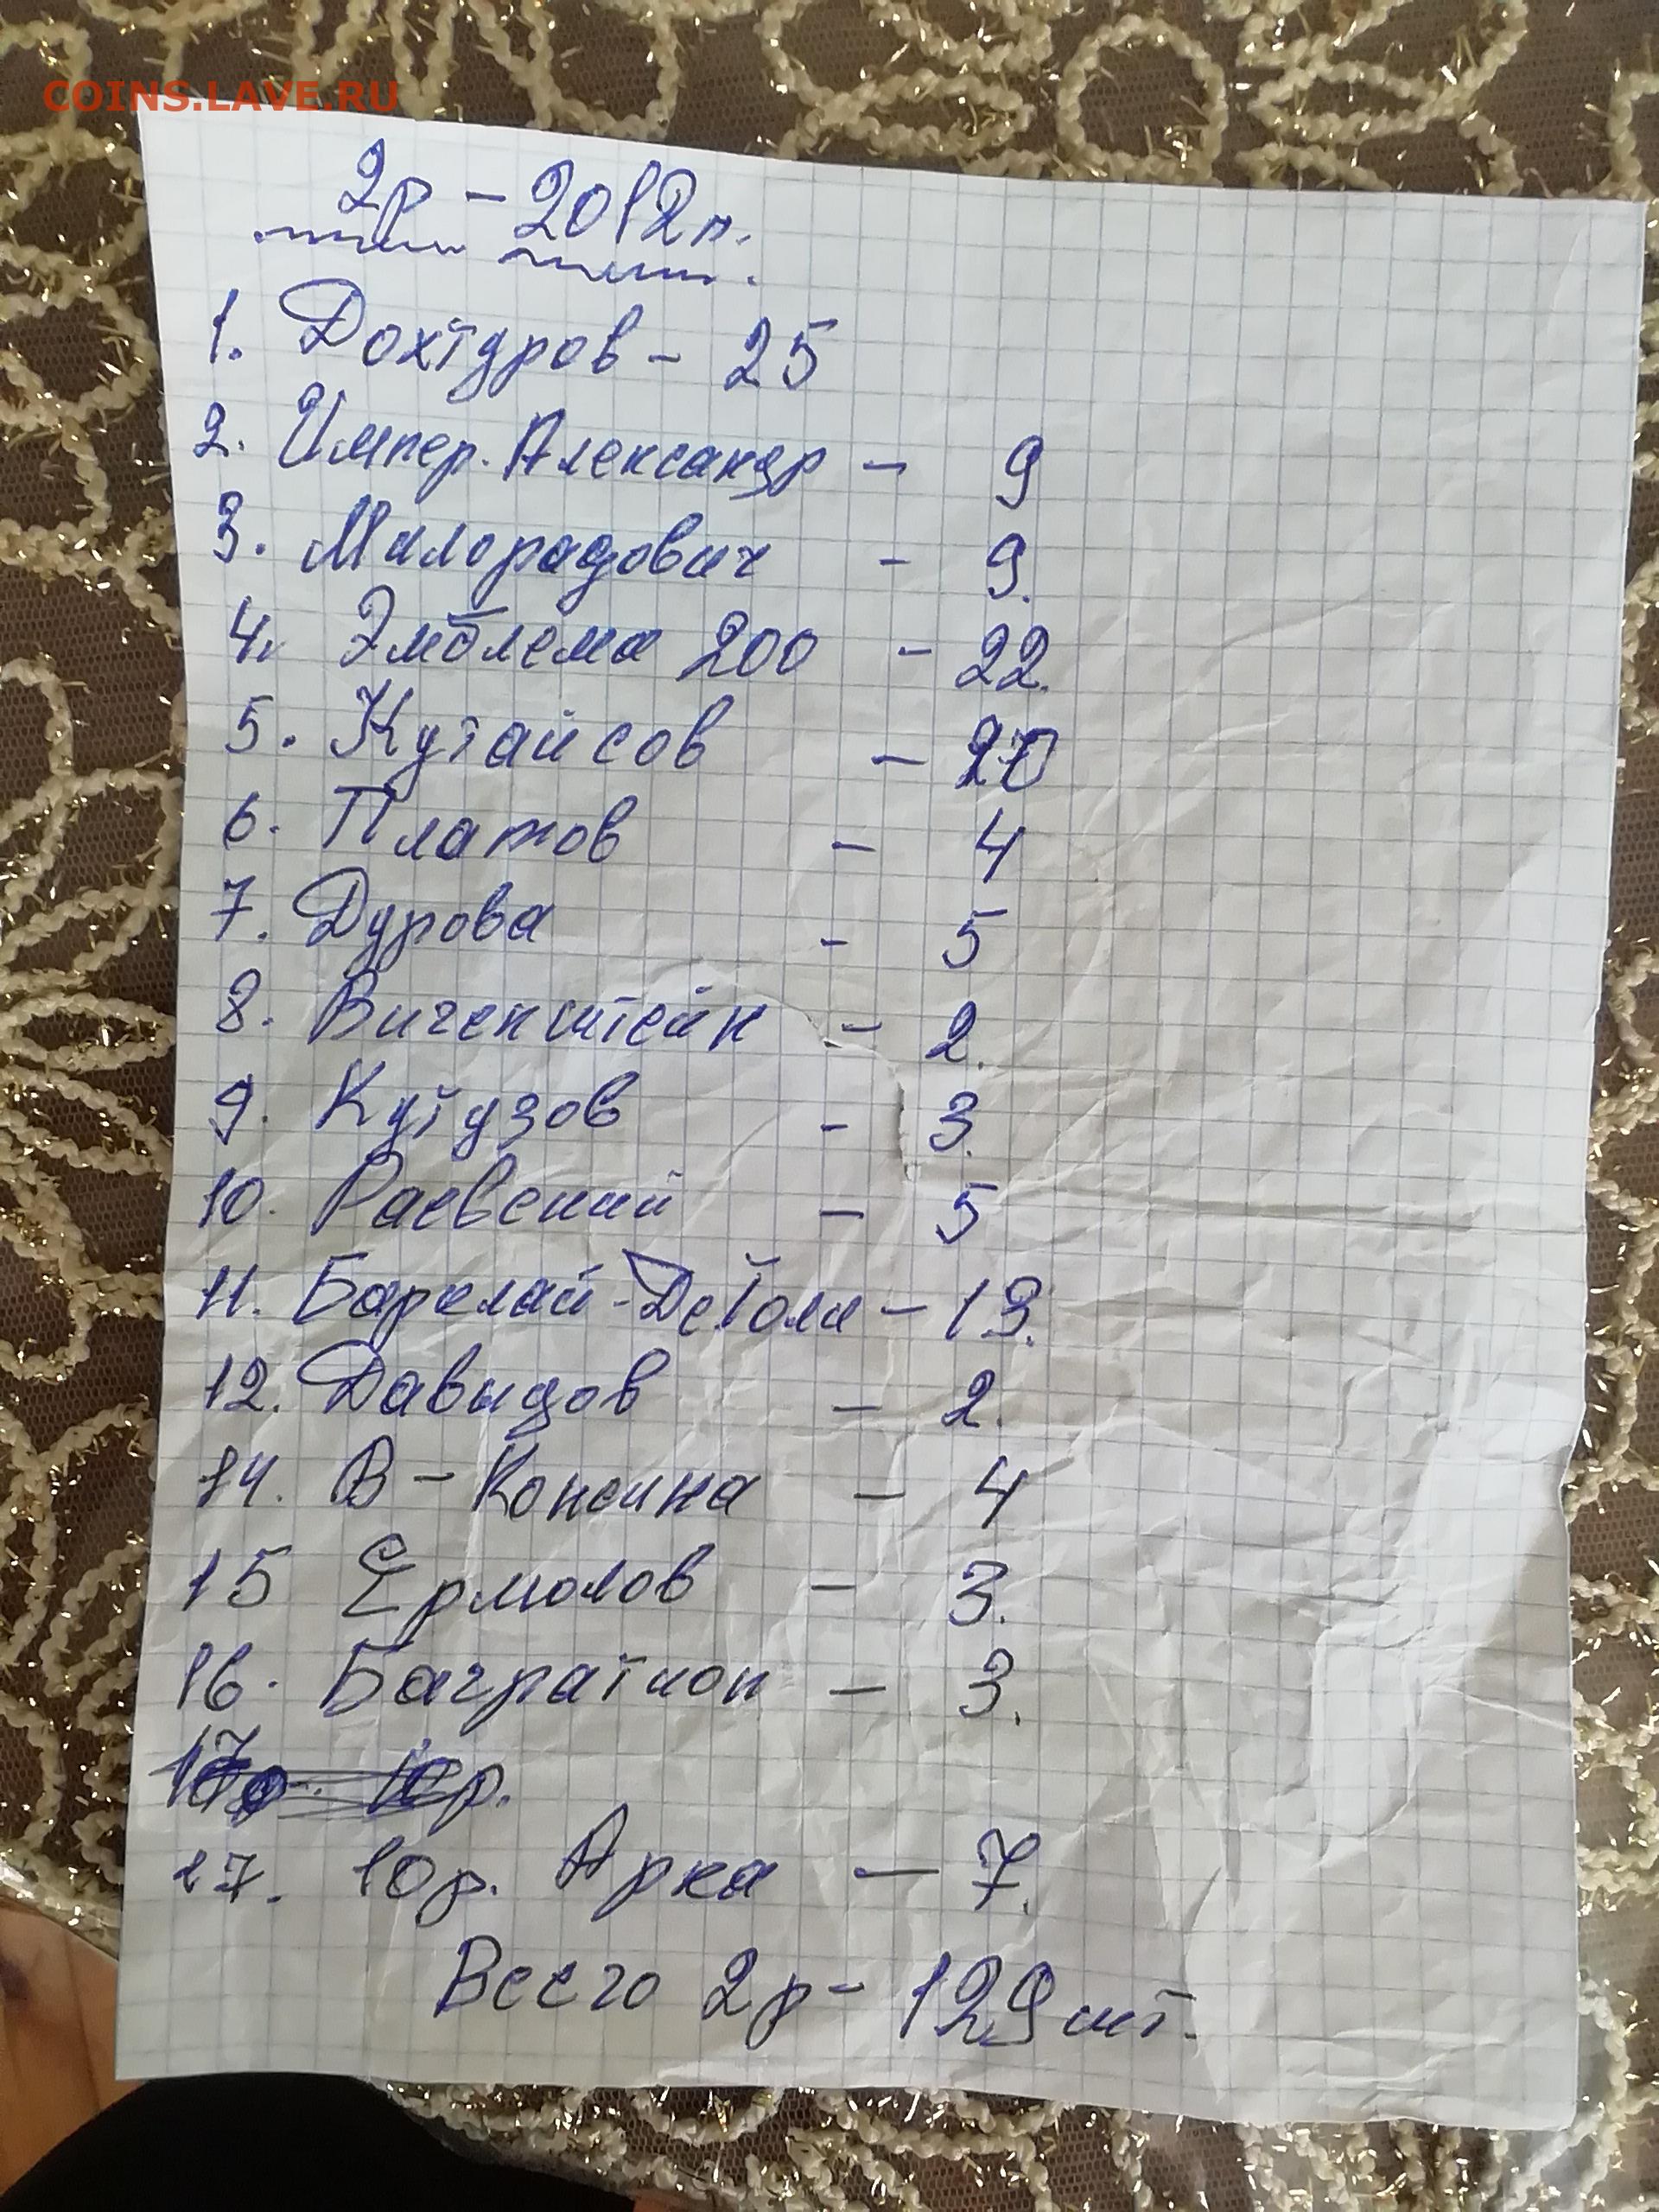 COINS.LAVE.RU
2р - 2012г.
1. Дохтуров - 25
2. Импер. Александр - 9
3. Милорадович - 9.
4. Эмблема 200 - 22.
5. Кутайсов - 20
6. Платов - 4
7. Дурова - 5
8. Вигенштейн - 2.
9. Кутузов - 3.
10. Раевский - 5
11. Барклай-ДеТолли - 13.
12. Давыдов - 2.
14. В - Кожина - 4
15 Ермолов - 3.
16. Багратион - 3.
17. 10р.
17. 10р. Арка - 7.
Всего 2р - 129 шт.